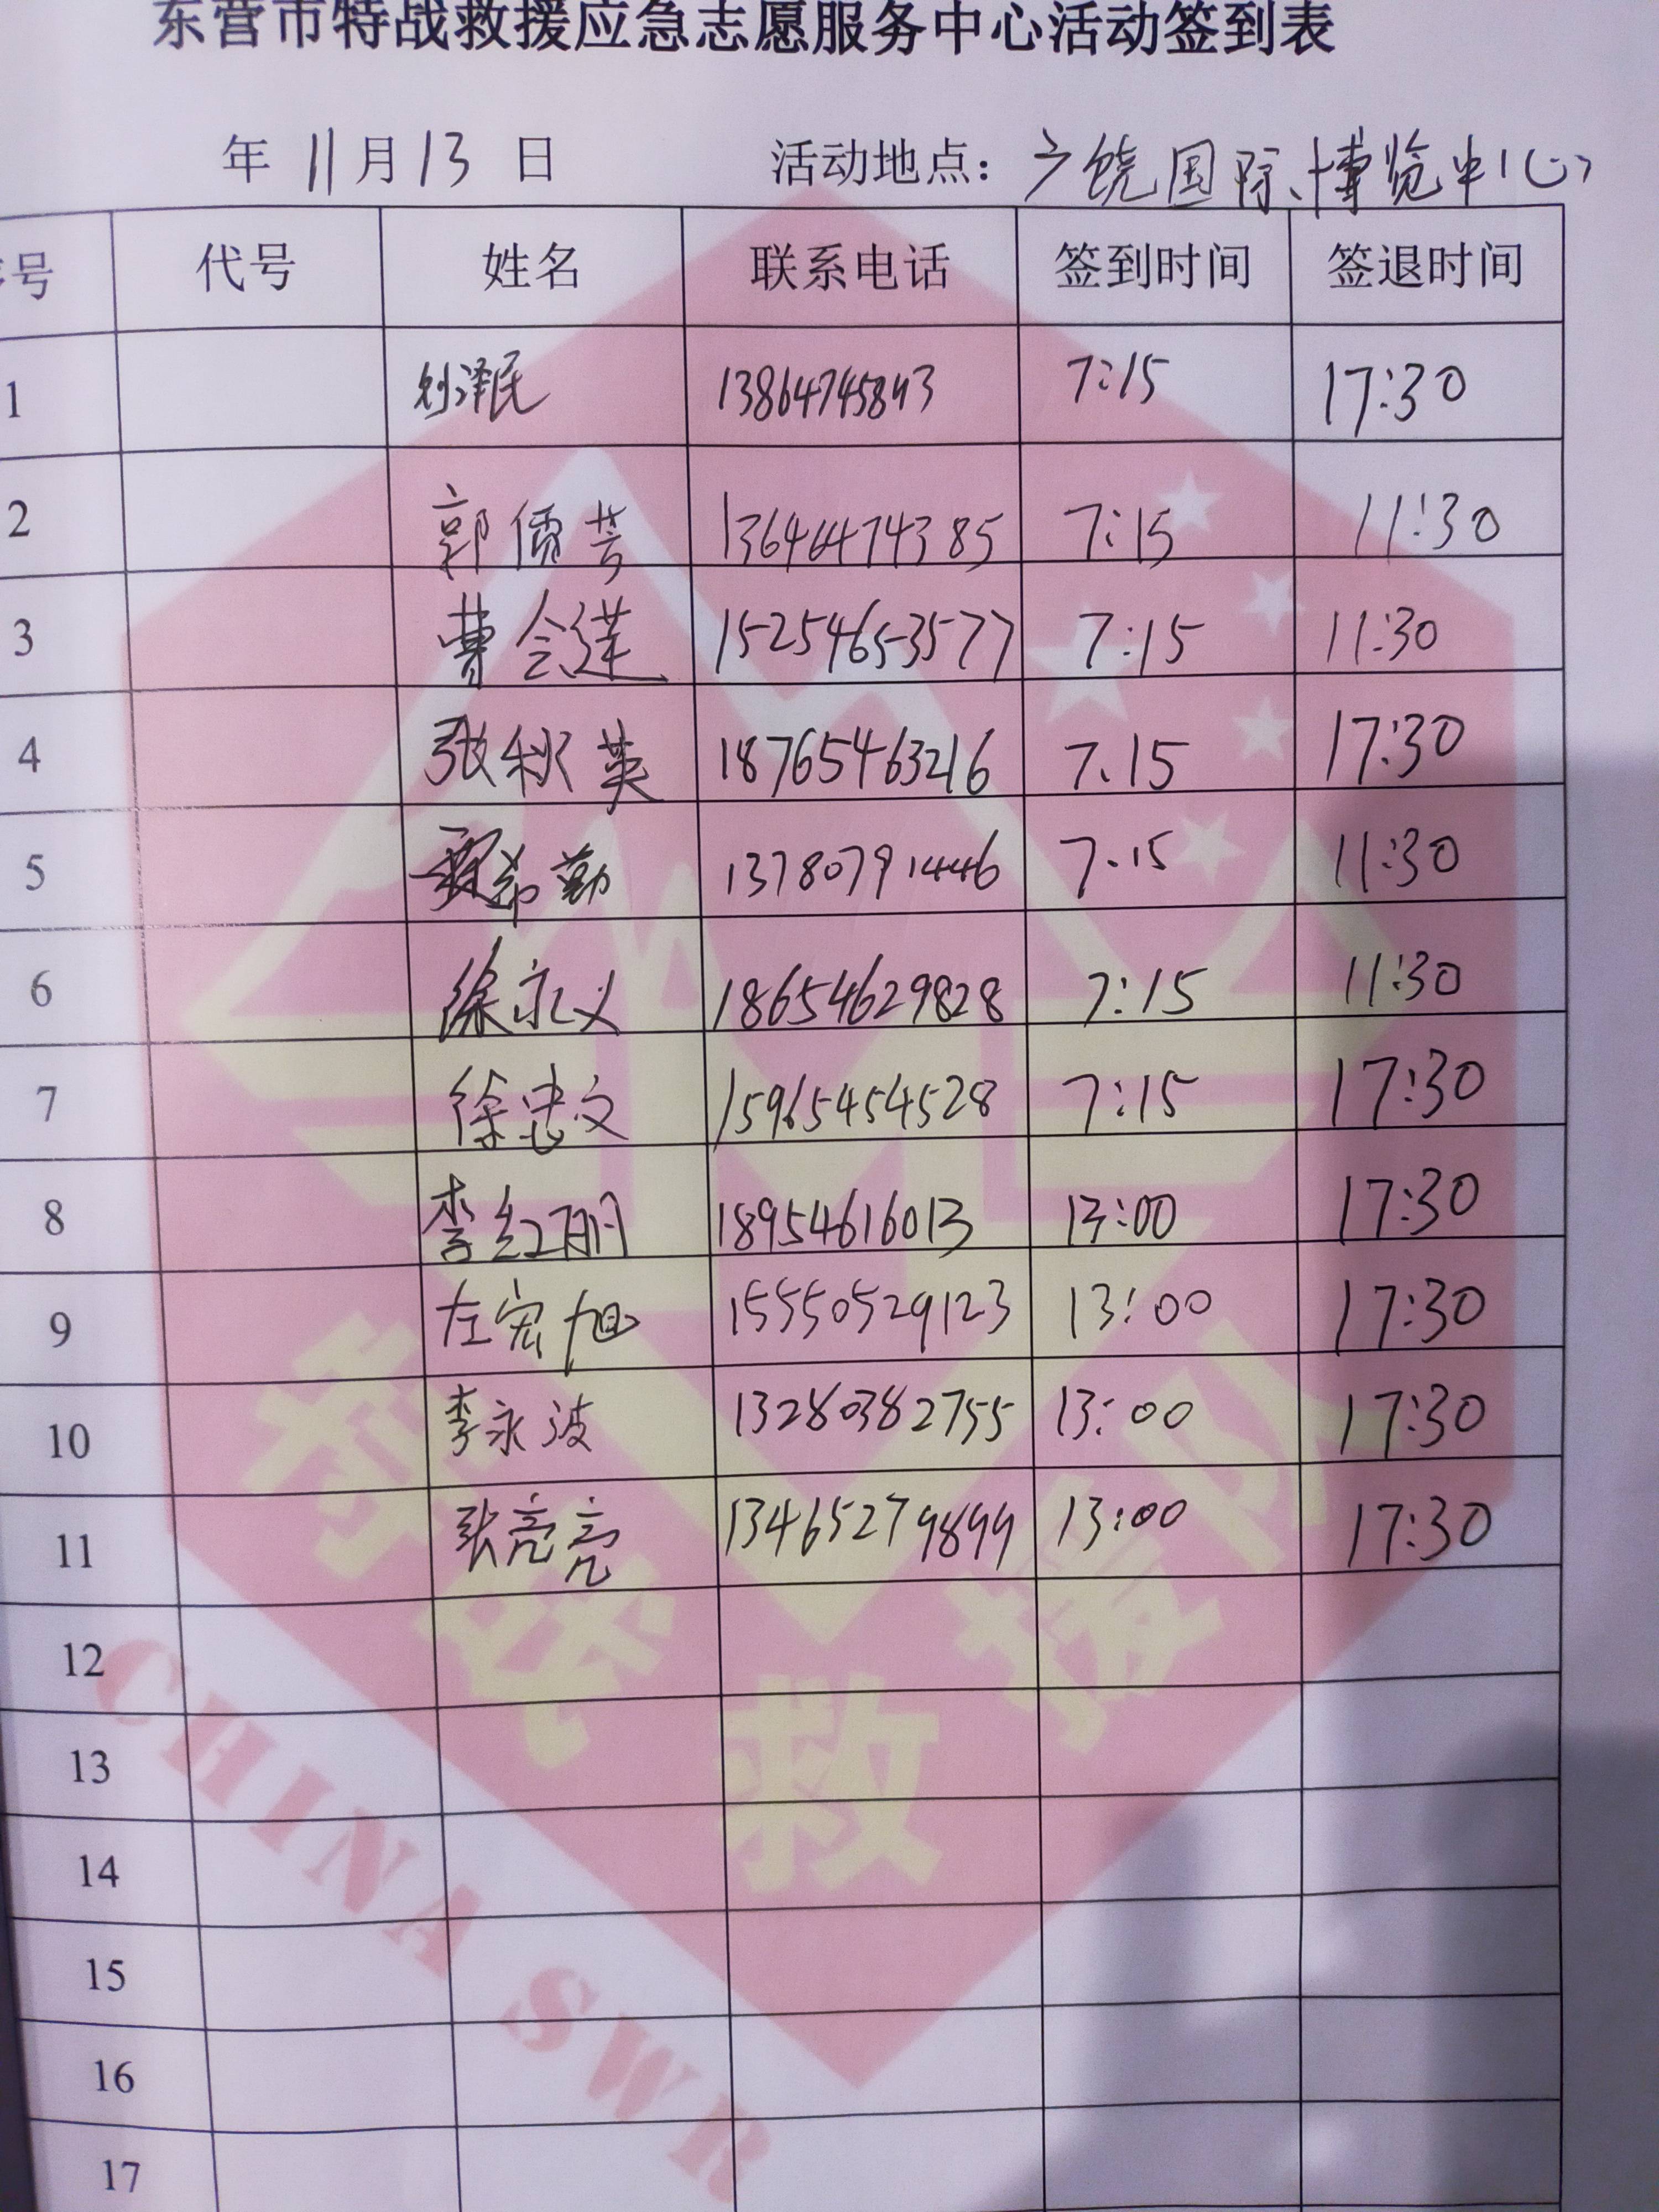 东营市特战救援应急志愿服务中心活动签到表
年 11月13 日 活动地点：广饶国际博览中心
号 代号 姓名 联系电话 签到时间 签退时间
1 刘泽民 7:15 17:30
2 郭 13646474385 7:15 11:30
3 曹会莲 15254653577 7:15 11:30
4 张秋英 18765463216 7.15 17:30
5 勤 13780791446 7.15 11:30
6 徐永义 18654629828 7:15 11:30
7 徐忠文 15965454528 7:15 17:30
8 李红丽 18954616013 13:00 17:30
9 左宏旭 15550529123 13:00 17:30
10 李永波 13280382755 13:00 17:30
11 张亮亮 13465279899 13:00 17:30
12
13
14
15
16
17
特战救援队
CHINA SWR